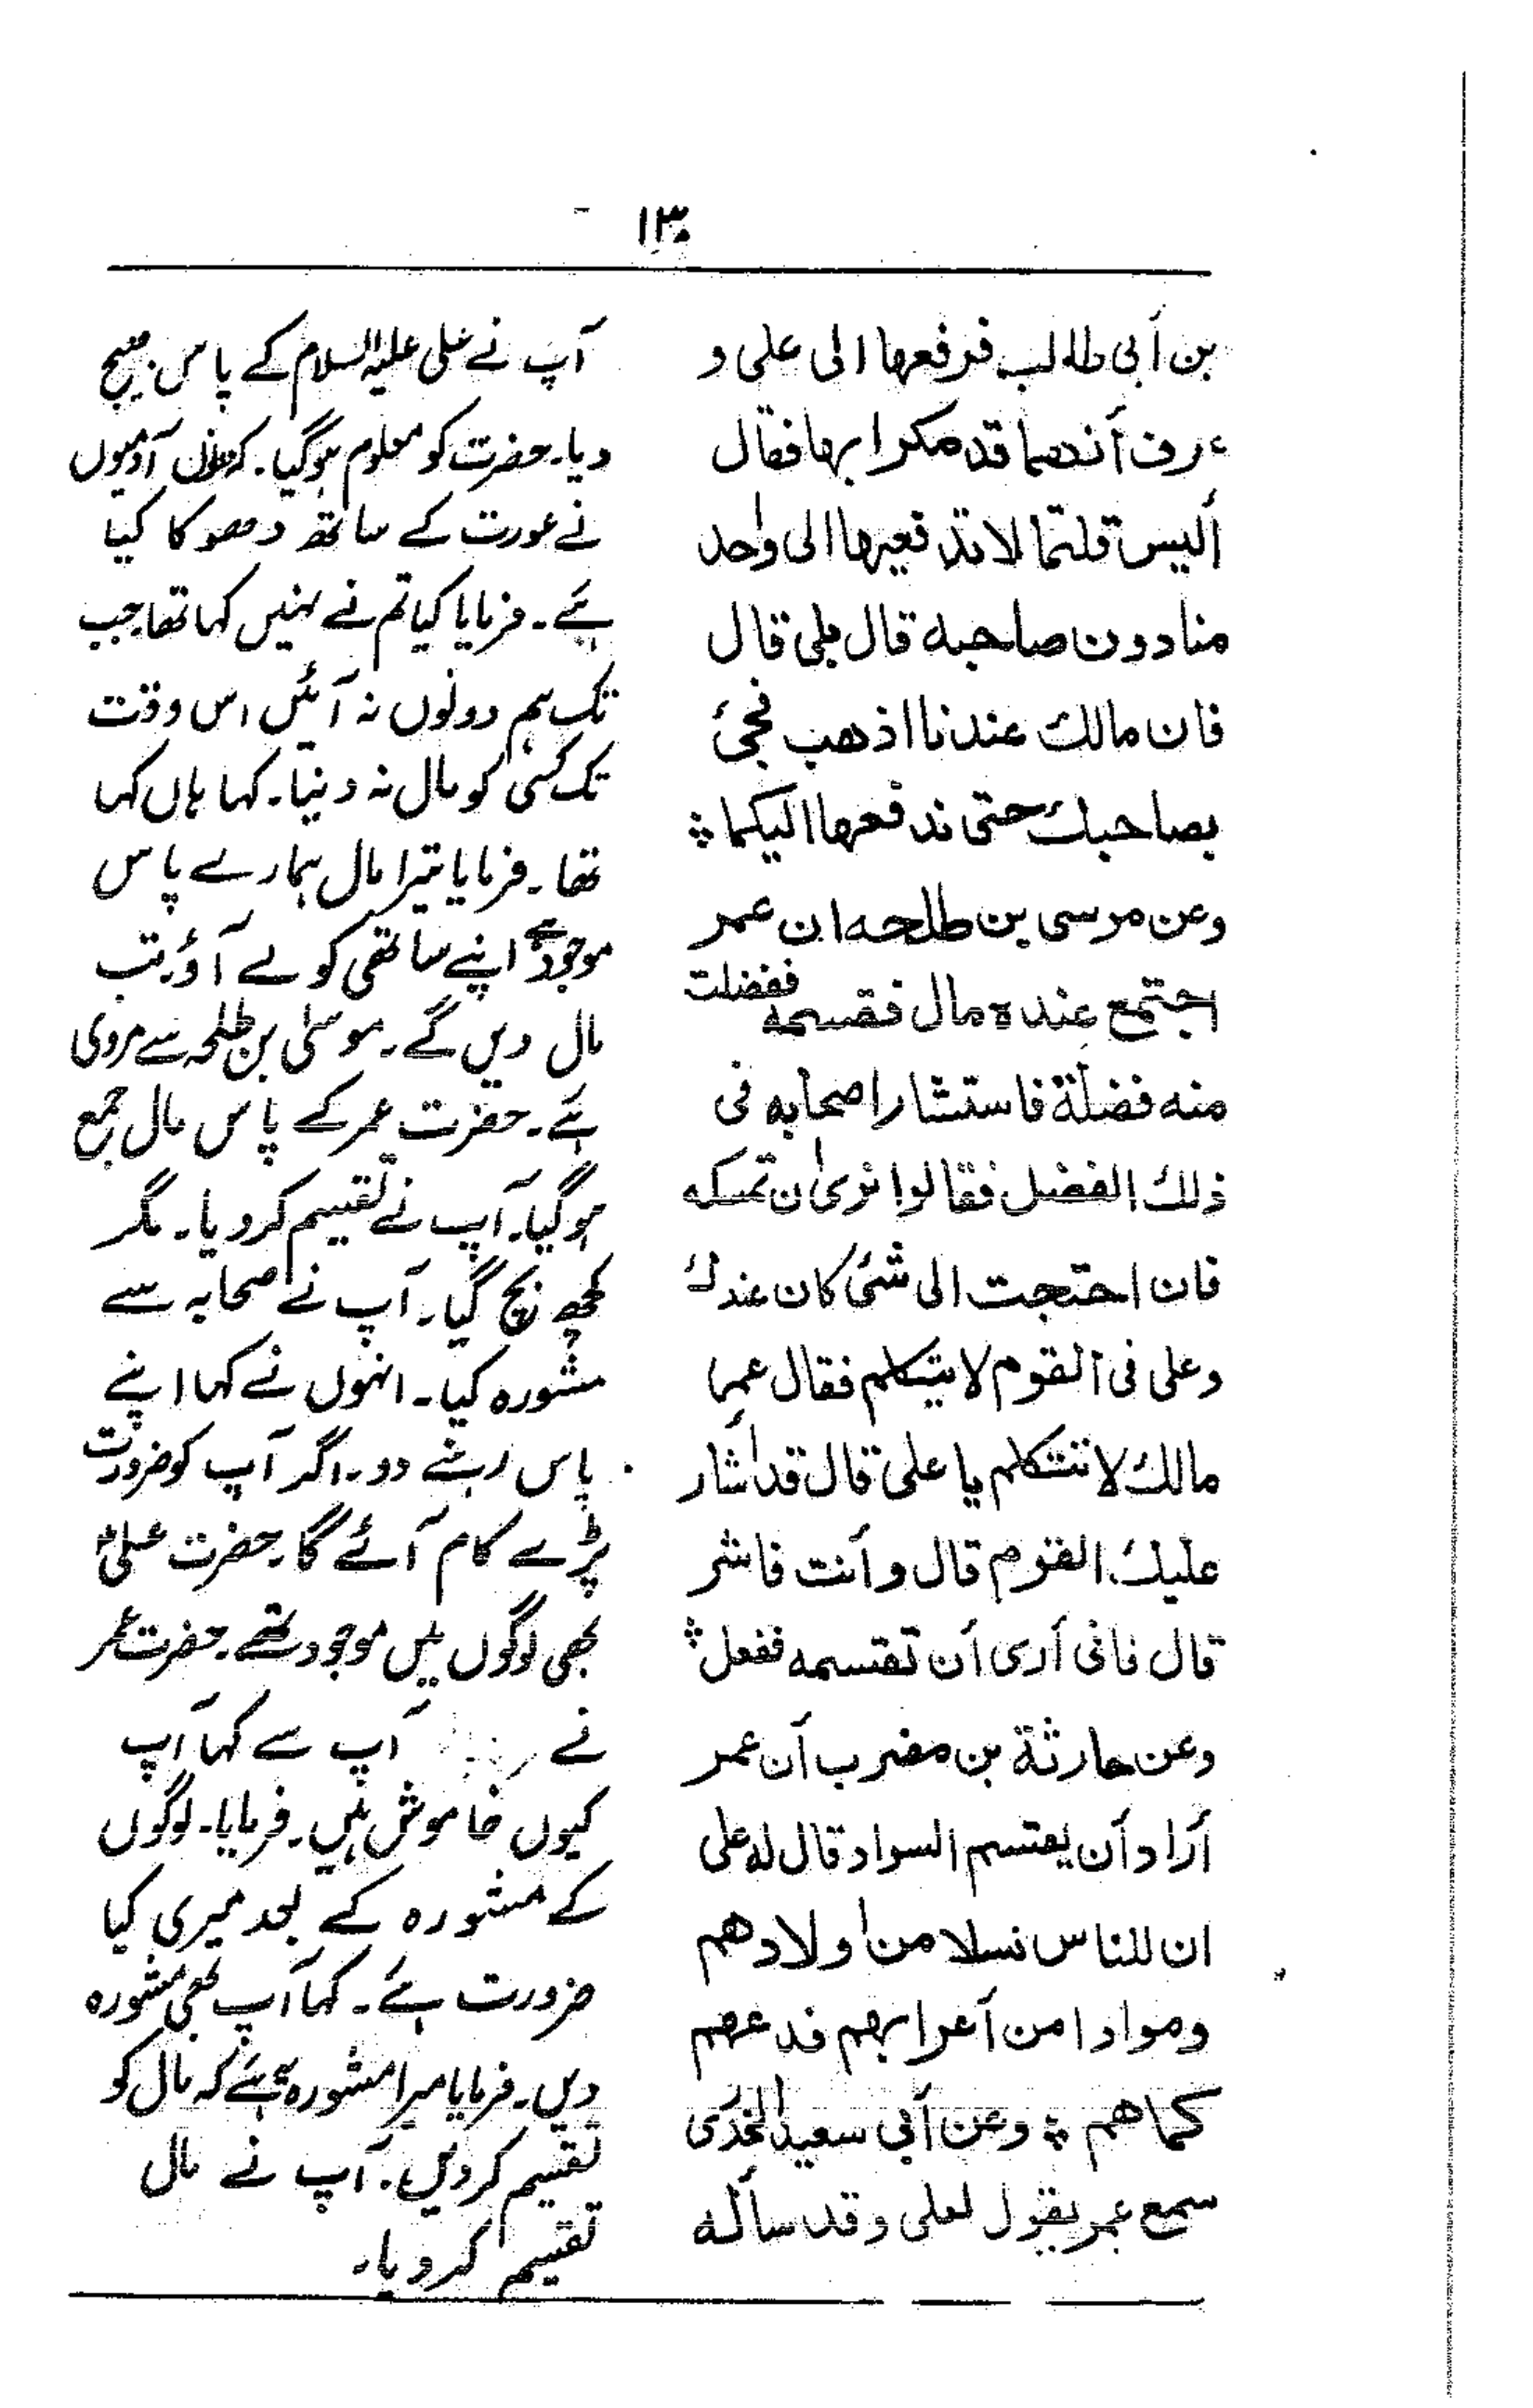 ۱۳۰
بن أبی طالب فرفعها الی علی و
عرف أنهما قد مکرا بها فقال
ألیس قلتما لا تدفعیها الی واحد
منا دون صاحبه قال بلی قال
فان مالك عندنا اذهب فجئ
بصاحبك حتی ندفعها الیکما ❊
وعن موسی بن طلحه ان عمر
اجتمع عنده مال فقسمه ففضلت
منه فضلة فاستشار اصحابه فی
ذلك الفضل فقالوا نری ان تمسکه
فان احتجت الی شئ کان عندك
وعلی فی القوم لا یتکلم فقال عمر
مالك لا تتکلم یا علی قال قد أشار
علیك القوم قال و أنت فاشر
قال فانی أری أن تقسمه ففعل ❊
وعن حارثة بن مضرب أن عمر
أراد أن یقتسم السواد قال له علی
ان للناس نسلا من اولادهم
وموادا من أعرابهم فدعهم
کماهم ❊ وعن أبی سعید الخدری
سمع عمر یقول لعلی وقد سأله
آپ نے علی علیہ السلام کے پاس بھیج
دیا۔ حضرت کو معلوم ہو گیا۔ کہ دونوں آدمیوں
نے عورت کے ساتھ دھوکا کیا
ہے۔ فرمایا کیا تم نے نہیں کہا تھا جب
تک ہم دونوں نہ آئیں اس وقت
تک کسی کو مال نہ دینا۔ کہا ہاں کہا
تھا۔ فرمایا تیرا مال ہمارے پاس
موجود ہے اپنے ساتھی کو لے آؤ۔ تب
مال دیں گے۔ موسیٰ بن طلحہ سے مروی
ہے۔ حضرت عمر کے پاس مال جمع
ہو گیا۔ آپ نے تقسیم کر دیا۔ مگر
کچھ بچ گیا۔ آپ نے صحابہ سے
مشورہ کیا۔ انہوں نے کہا اپنے
پاس رہنے دو۔ اگر آپ کو ضرورت
پڑے کام آئے گا۔ حضرت علیؑ
بھی لوگوں میں موجود تھے۔ حضرت عمر
نے آپ سے کہا آپ
کیوں خاموش ہیں۔ فرمایا۔ لوگوں
کے مشورہ کے بعد میری کیا
ضرورت ہے۔ کہا آپ بھی مشورہ
دیں۔ فرمایا میرا مشورہ یہ ہے کہ مال کو
تقسیم کر دیں۔ آپ نے مال
تقسیم کر دیا۔